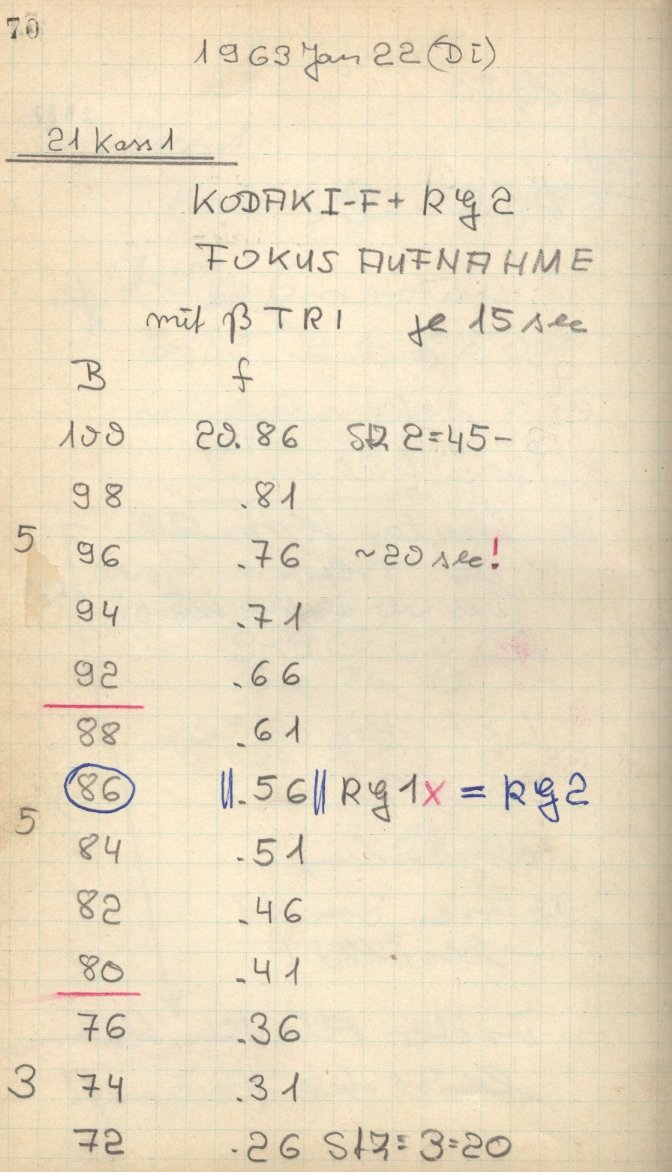 70
1963 Jan 22 (DI)
21 Kass 1
KODAK I-F + RG 2
FOKUS AUFNAHME
mit β TRI je 15 sec
B f
100 20.86 StZ 2=45-
98 .81
5 96 .76 ~20 sec!
94 .71
92 .66
88 .61
86 ||.56|| RG 1x = RG 2
5
84 .51
82 .46
80 .41
76 .36
3 74 .31
72 .26 StZ= 3=20